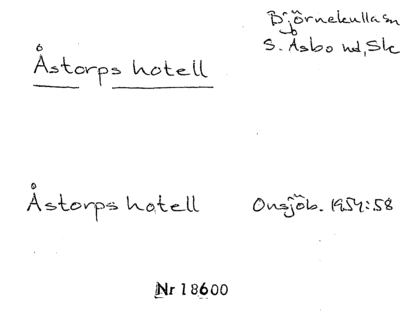 Björnekulla sn
S. Åsbo hd, Sk
Åstorps hotell
Åstorps hotell Onsjöb. 1954:58
Nr 18600